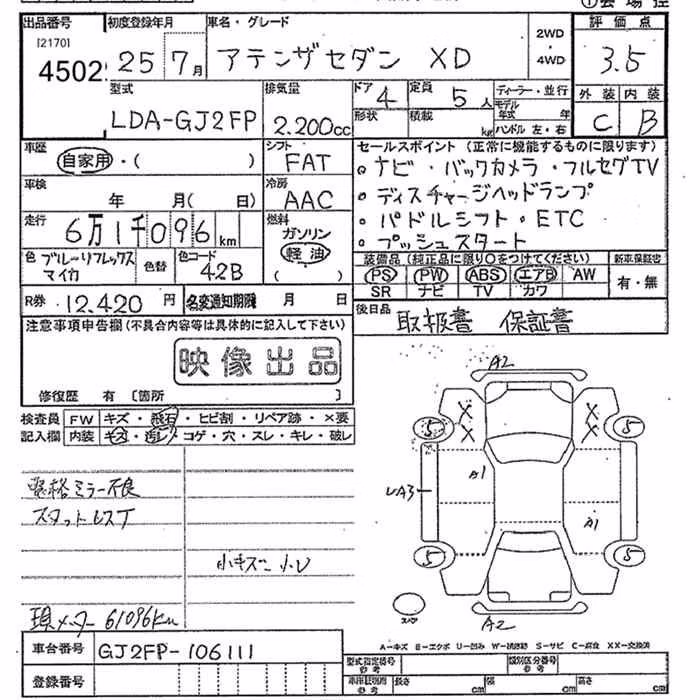 ①会場控
出品番号 初度登録年月 車名・グレード 評価点
[2170]
4502 25 7月 アテンザセダン XD 2WD・4WD 3.5
型式 排気量 ドア 4 定員 5人 ディーラー・並行 外装 内装
LDA-GJ2FP 2.200cc 形状 積載 kg モデル年式 年 ハンドル 左・右 C B
車歴 シフト セールスポイント(正常に機能するものに限ります)
自家用・( ) FAT ○ナビ・バックカメラ・フルセグTV
車検 冷房 ○ディスチャージヘッドランプ
年 月( 日) AAC ○パドルシフト・ETC
走行 燃料 ○プッシュスタート
6万1千096km ガソリン 軽油 ( )
色 ブルーリフレックスマイカ 色替 色コード 42B
装備品(純正品に限り○をつけてください) 新車保証書
PS PW ABS エアB AW 有・無
SR ナビ TV カワ
R券 12.420円 名変通知期限 月 日
後日品 取扱書 保証書
注意事項申告欄(不具合内容等は具体的に記入して下さい)
映像出品
修復歴 有 [箇所 ]
検査員 FW キズ・飛石・ヒビ割・リペア跡・×要
記入欄 内装 キズ・汚レ・コゲ・穴・スレ・キレ・破レ
A2
X X
X X
5 5
A1
A3
A1
5 5
スペア
A2
ミラー不良
スタットレスT
小キズ 小凹
現メーター 61096km
A-キズ E-エクボ U-凹み W-補修跡 S-サビ C-腐食 XX-交換済
車台番号 GJ2FP-106111
登録番号
型式指定番号 参考 類別区分番号 参考
車庫証明用 参考 長さ cm 幅 cm 高さ cm